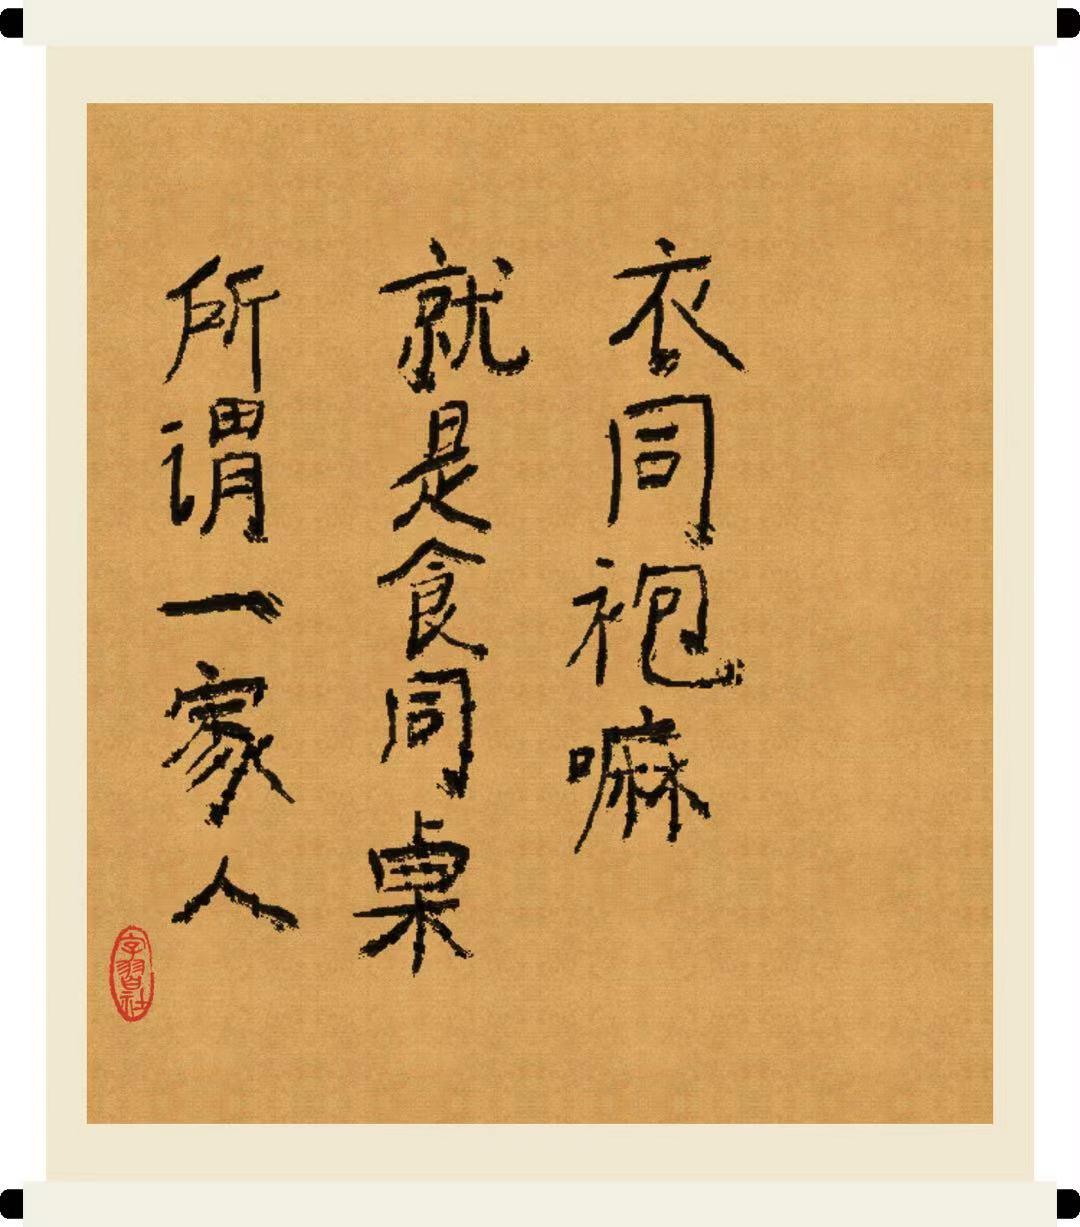 所谓一家人
就是食同桌
衣同袍嘛
字習社